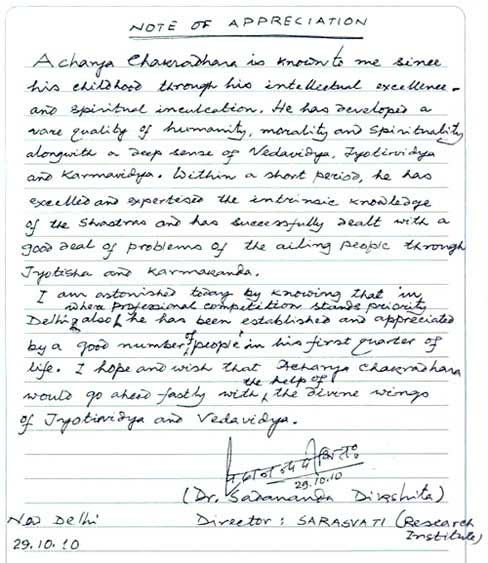 NOTE OF APPRECIATION
Acharya Chakradhara is known to me since
his childhood through his intellectual excellence
and spiritual inculcation. He has developed a
rare quality of humanity, morality and spirituality
alongwith a deep sense of Vedavidya, Jyotirvidya
and Karmavidya. Within a short period, he has
excelled and expertised the intrinsic knowledge
of the Shastras and has successfully dealt with a
good deal of problems of the ailing people through
Jyotisha and Karmakanda.
I am astonished today by knowing that in
where professional competition stands priority
Delhi also, he has been established and appreciated
by a good number of people in his first quarter of
life. I hope and wish that Acharya Chakradhara
the help of
would go ahead fastly with the divine wings
of Jyotirvidya and Vedavidya.
29.10.10
(Dr. Sadananda Dikshita)
New Delhi Director: SARASVATI (Research
Institute)
29.10.10